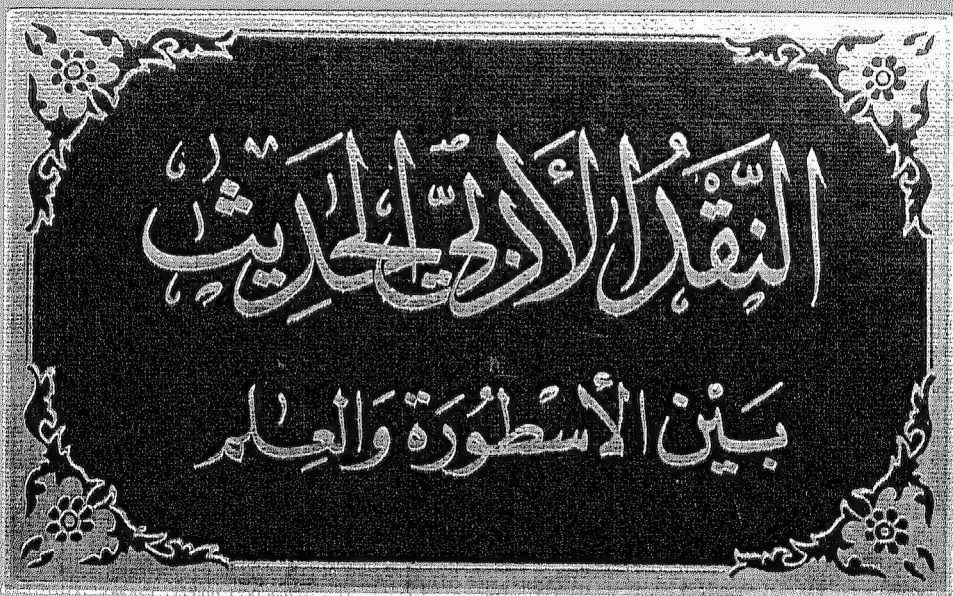 النَّقْدُ الأَدَبِيُّ الْحَدِيثُ
بَيْنَ الأُسْطُورَةِ وَالْعِلمِ